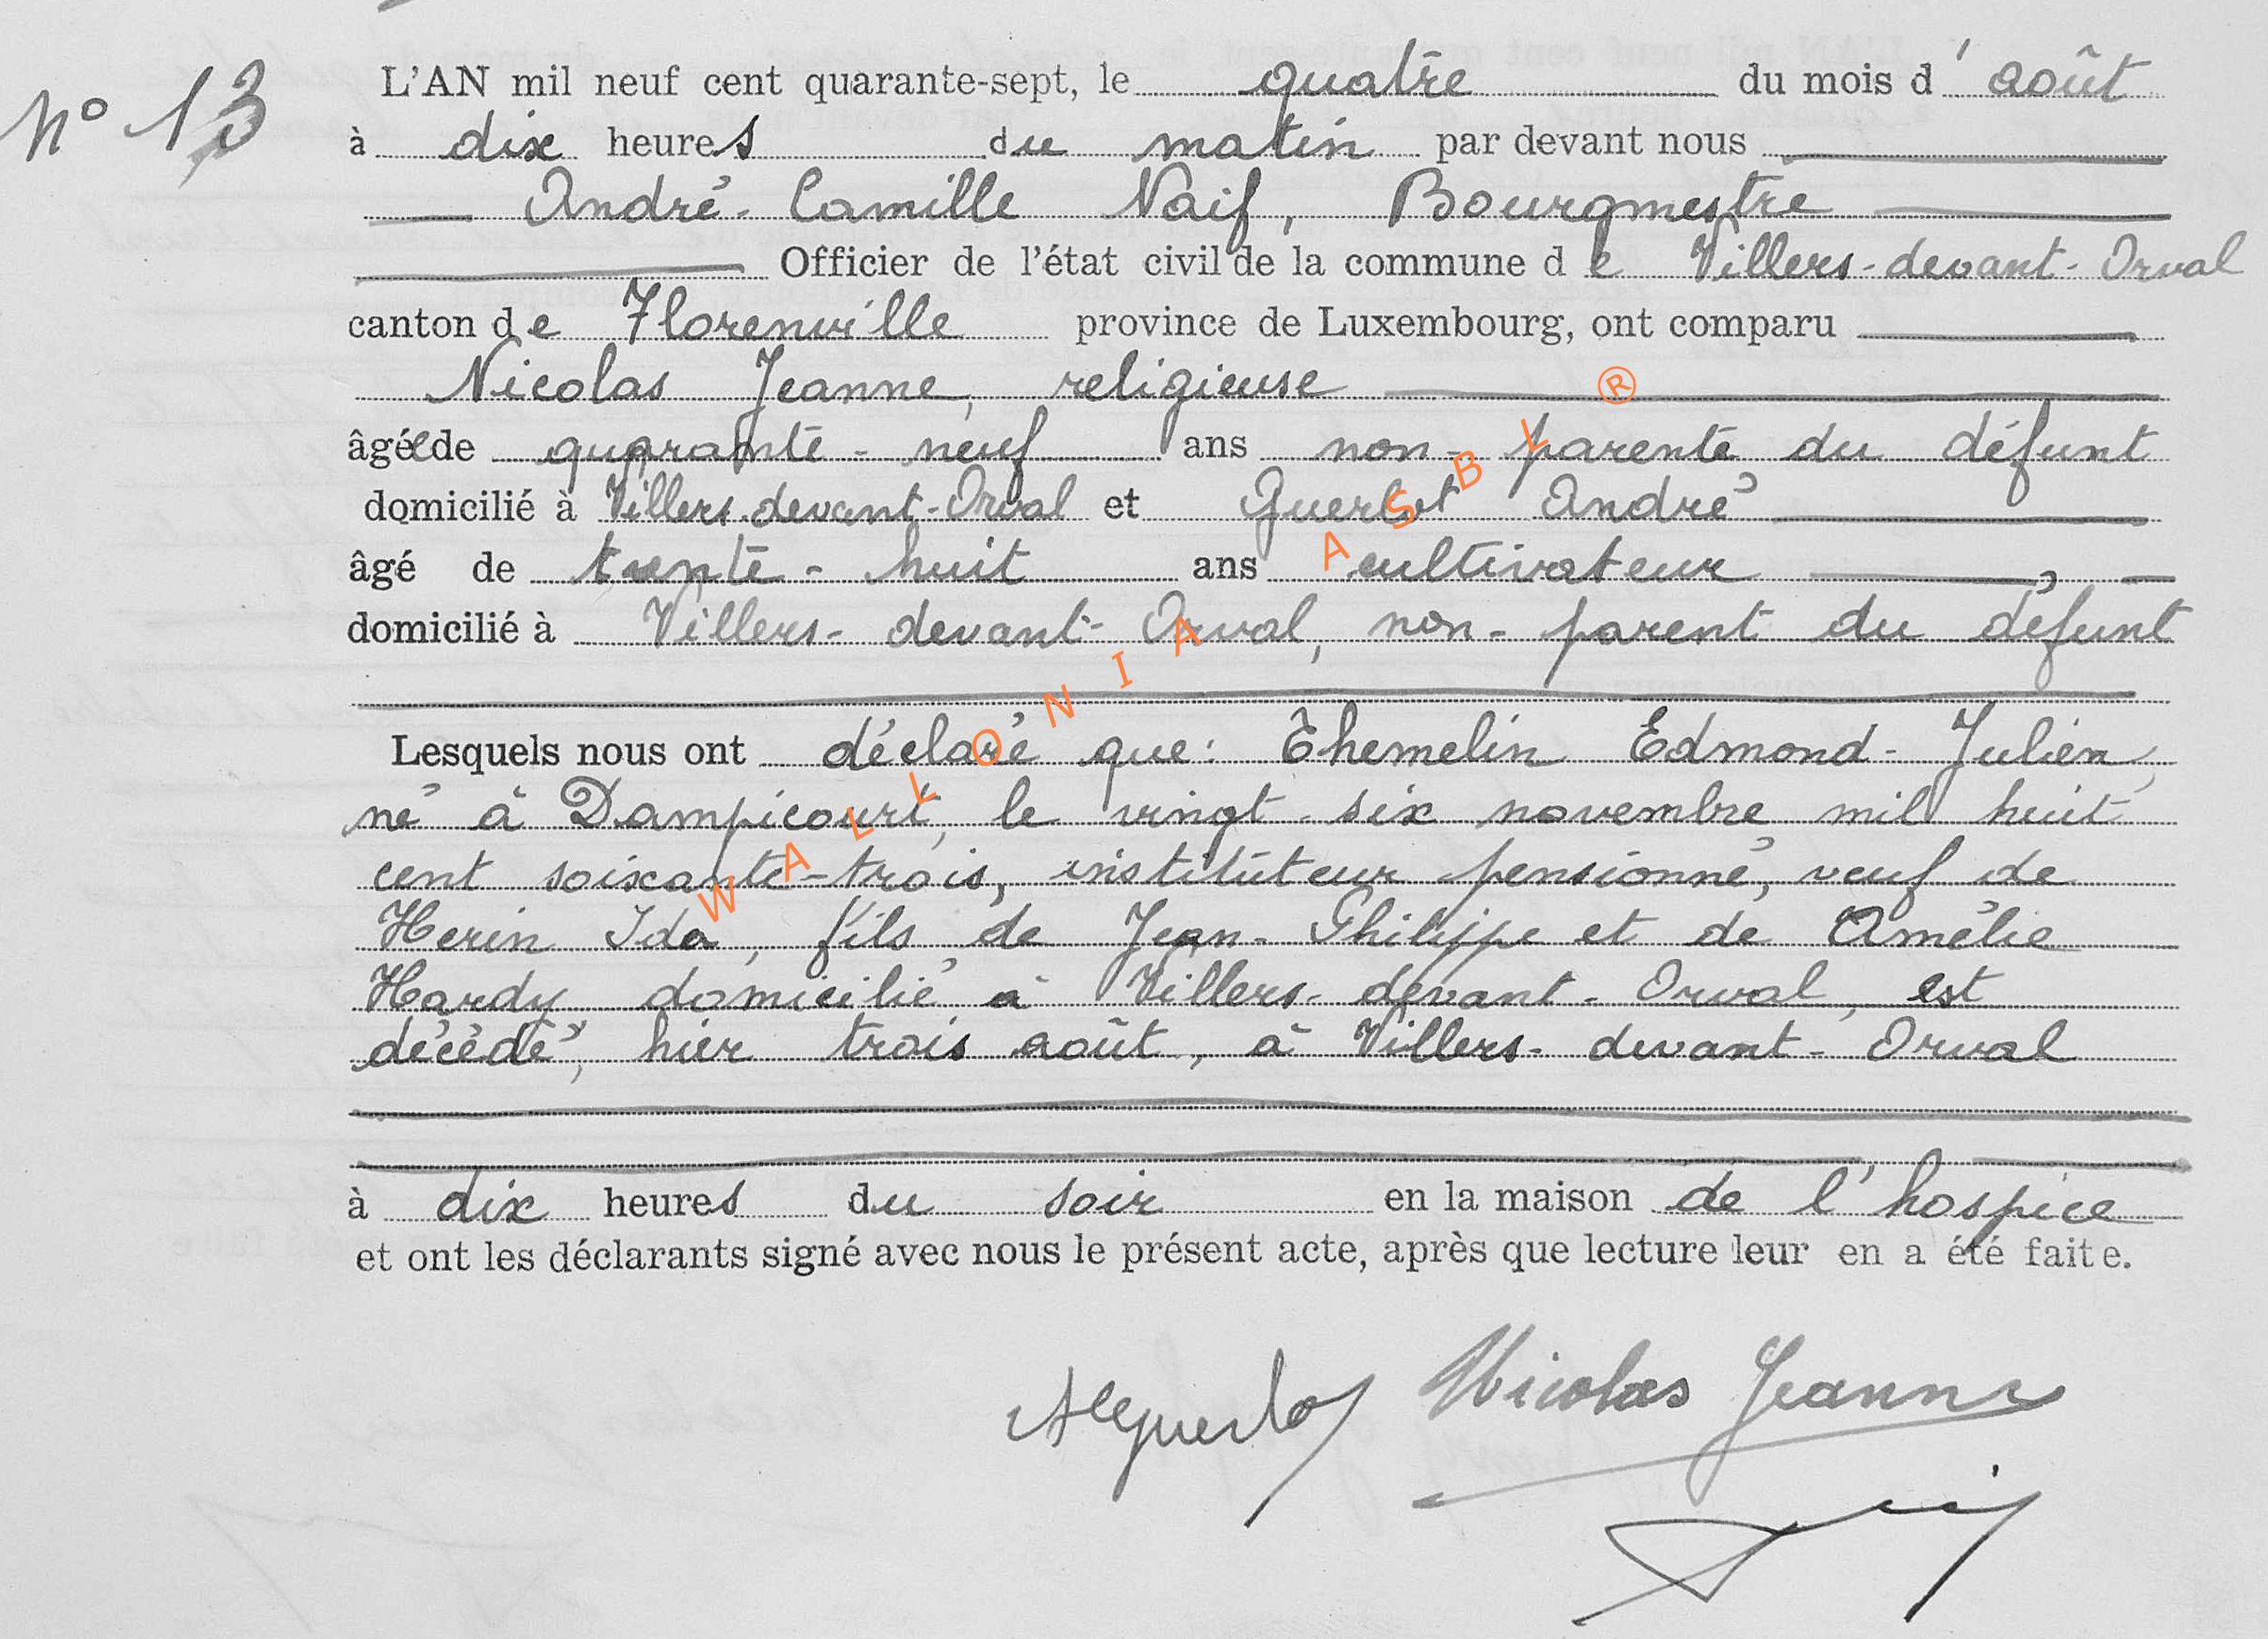 N° 13
L'AN mil neuf cent quarante-sept, le quatre du mois d' août
à dix heures du matin par devant nous
André-Camille Naif, Bourgmestre
Officier de l'état civil de la commune de Villers-devant-Orval
canton de Florenville province de Luxembourg, ont comparu
Nicolas Jeanne, religieuse
âgée de quarante-neuf ans non-parente du défunt
domicilié à Villers-devant-Orval et Guerlot André
âgé de trente-huit ans cultivateur,
domicilié à Villers-devant-Orval, non-parent du défunt
Lesquels nous ont déclaré que: Themelin Edmond-Julien,
né à Dampicourt, le vingt-six novembre mil huit
cent soixante-trois, instituteur pensionné, veuf de
Herin Ida, fils de Jean-Philippe et de Amélie
Hardy domicilié à Villers-devant-Orval, est
décédé, hier trois août, à Villers-devant-Orval
à dix heures du soir en la maison de l'hospice
et ont les déclarants signé avec nous le présent acte, après que lecture leur en a été faite.
AGuerlot Nicolas Jeanne
WALLONIA ASBL ®